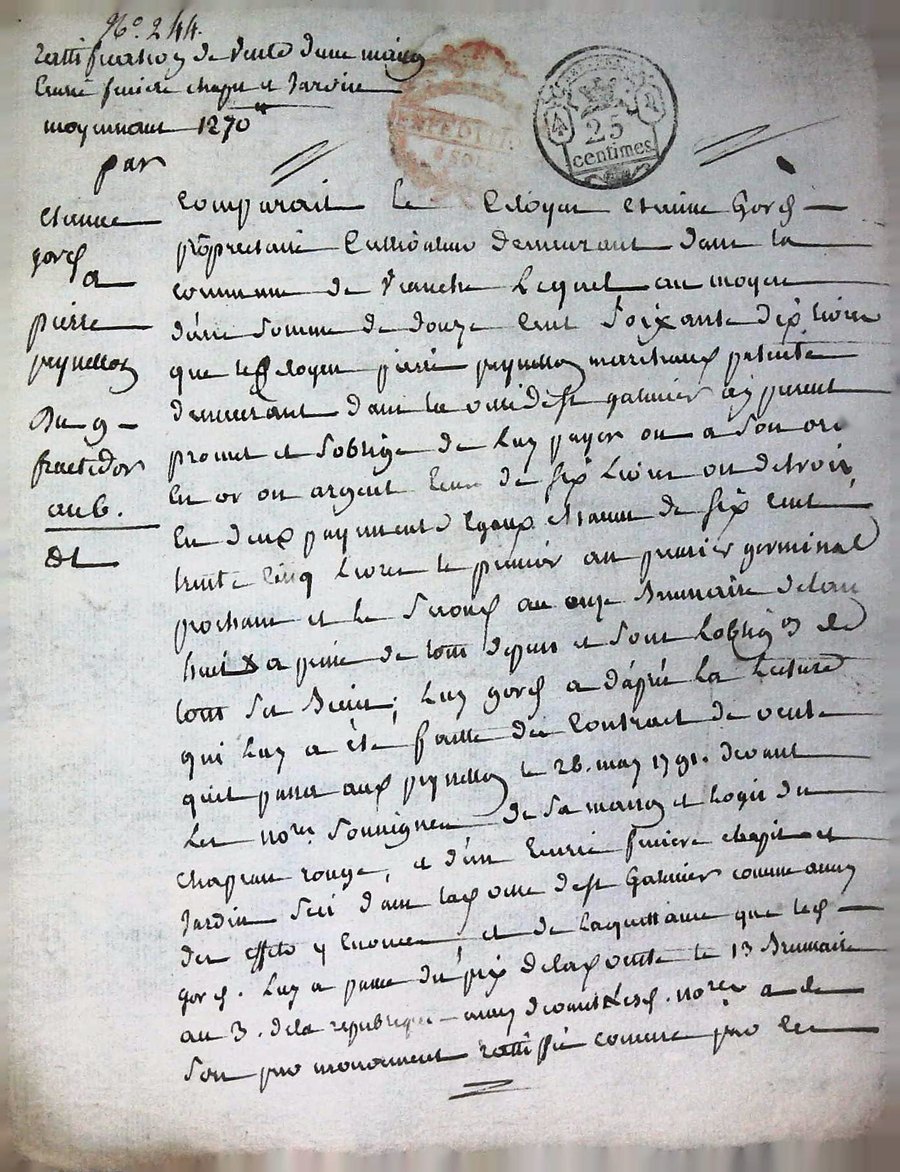 No. 244.
Rattification de vente d'une maison
Ecurie feniere chapit et Jardin
moyennant 1270#
par
etienne
gord
a
pierre
peynellon
Du 9
fructidor
an 6.
dt
25
centimes
Comparait le Citoyen etienne Gord
propriétaire Cultivateur demeurant dans la
commune de Lequel au moyen
d'une somme de douze Cent Soixante dix livres
que led Citoyen pierre peynellon marchand patenté
demeurant dans la ville de st galmier icy present
promet et s'oblige de Luy payer ou a son ordre
En or ou argent Ecus de six Livres ou de trois
En deux payements Egaux chacun de six Cent
trente Cinq Livres le premier au premier germinal
prochain et le Second au onze Brumaire de lan
huit a peine de tous depens et sous L'oblig.on de
tous ses Biens, Luy gord a d'apré La Lecture
qui Luy a été faitte du Contrat de vente
qu'il passa aud peynellon le 28. may 1791. devant
Les nores. Soussignés de Sa maison et Logis du
chapeau rouge, et d'un Ecurie feniere chapit et
Jardin Scis dans lad ville de st Galmier comme aussy
des effets y Enoncés, et de La quittance que led
gord. Luy a passé du prix de lad vente le 13 Brumaire
an 3. de la republique aussy devant Lesd. nores. a de
Son pur mouvement rattiffié comme par les